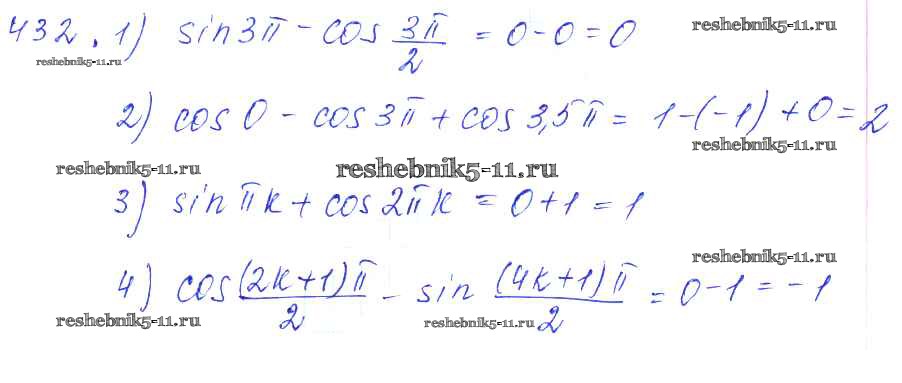 432. 1) sin3π - cos 3π/2 = 0 - 0 = 0 reshebnik5-11.ru
reshebnik5-11.ru
2) cos0 - cos3π + cos3,5π = 1 - (-1) + 0 = 2
reshebnik5-11.ru
reshebnik5-11.ru reshebnik5-11.ru
3) sinπk + cos2πk = 0 + 1 = 1
reshebnik5-11.ru
4) cos (2k+1)π/2 - sin (4k+1)π/2 = 0 - 1 = -1
reshebnik5-11.ru reshebnik5-11.ru reshebnik5-11.ru